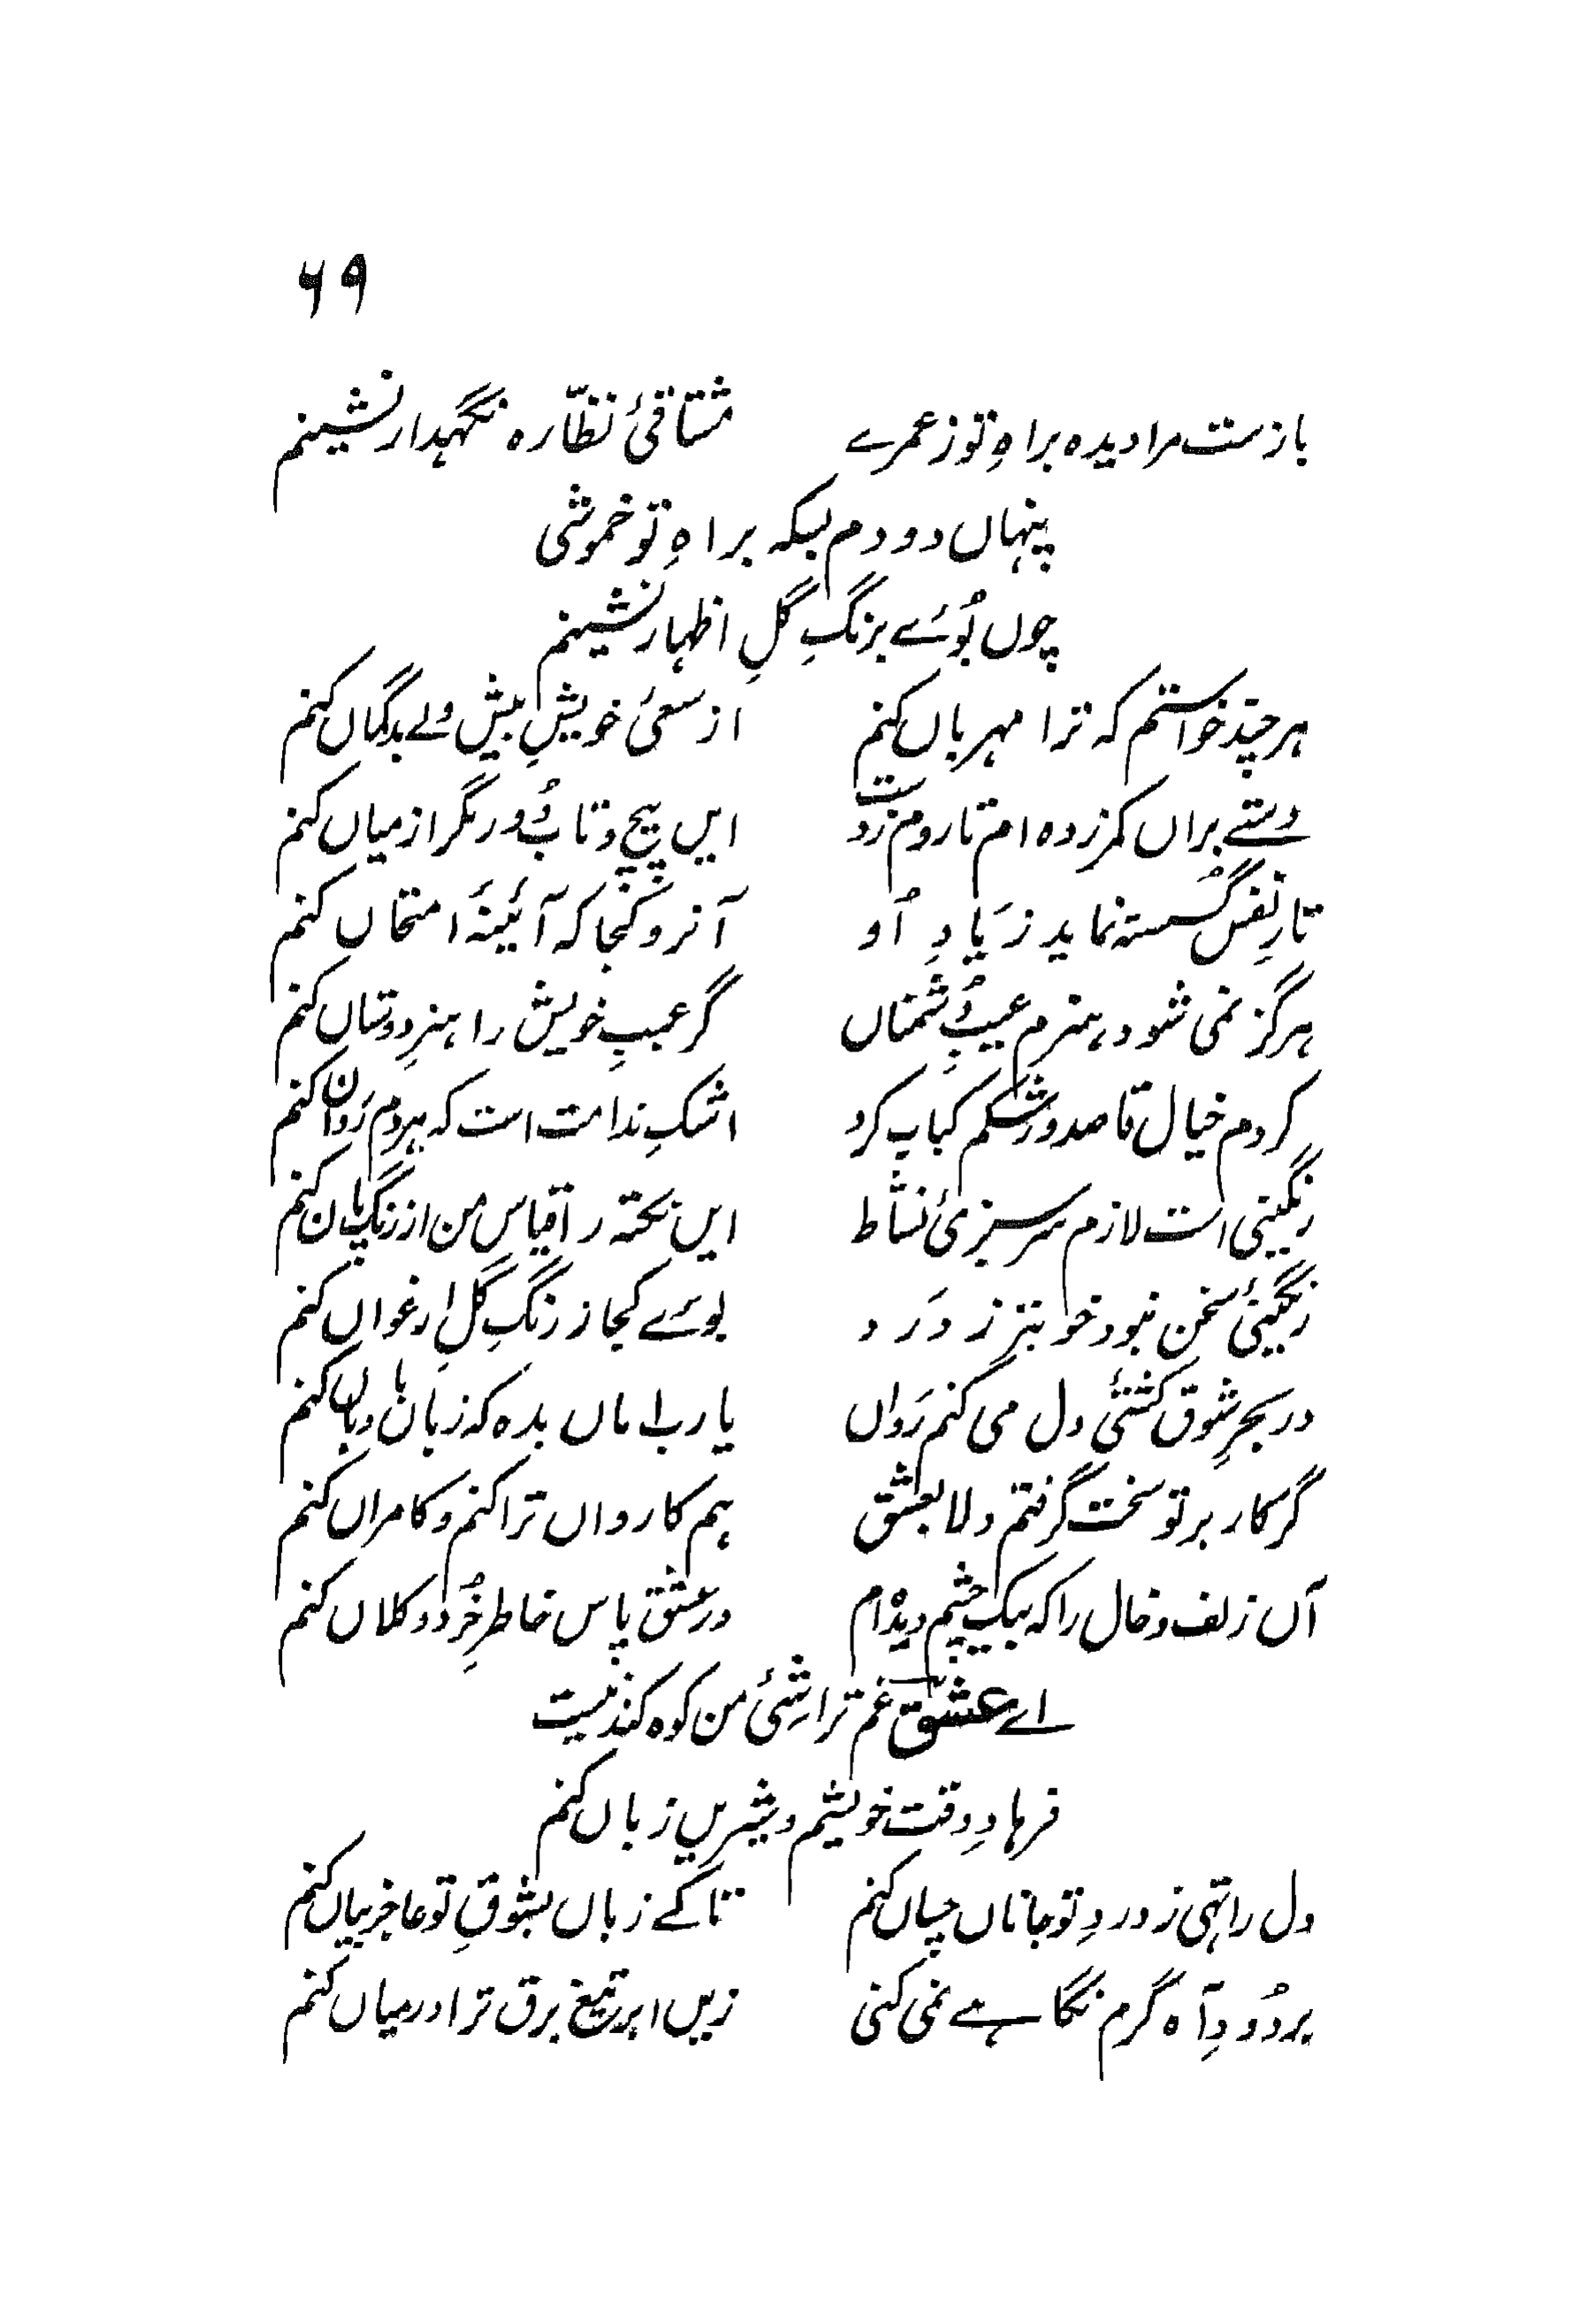 ۶۹
باز ست مرا دیدہ براہِ تو ز عمرے مشتاقیٔ نظّارہ نگہدار نشینم
پنہاں دو دم بسکہ براہِ تو خموشی
چوں بُوئے برنگِ گلِ اظہار نشینم
ہر چند خواستم کہ ترا مہرباں کنم از سعیٔ خویشِ بیش ولے بدگماں کنم
دستے براں کمر زدہ ام تا روم ز دست ایں پیچ و تابِ دُور مگر از میاں کنم
تارِ نفس گُسستہ نماید ز یَادِ اُو آنرو کجا کہ آئینۂ امتحاں کنم
ہرگز نمی شود ہنرم عیبِ دُشمناں گر عیبِ خویش را ہنرِ دوستاں کنم
کردم خیال قاصد و رشکم کباب کرد اشکِ ندامت است کہ ہردم رَوان کنم
رنگینی است لازم سرسبزیٔ نشاط ایں نکتہ را قیاس من از رنگِ پان کنم
رنگینیٔ سخن نبود خوبتر ز دَرد بوئے کجا ز رنگِ گلِ ارغواں کنم
در بحرِ شوق کشتیٔ دل می کنم رَواں یارب اماں بدہ کہ زبان بادباں کنم
گر کار بر تو سخت گرفتم دلا بعشق ہم کار واں ترا کنم و کامراں کنم
آں زلف و خال را کہ بیک چشم دیدہ ام در عشق پاس خاطرِ خُرد و کلاں کنم
اے عشقؔ غم تراشیٔ من کوہ کند نیست
فرہادِ وقت خویشم و شیریں زباں کنم
دل را تہی ز دردِ تو جاناں چساں کنم تا کے زباں بشوقِ تو عاجز بیاں کنم
بر دُودِ آہ گرم نگاہے نمی کنی زیں ابر تیغ برق ترا درمیاں کنم